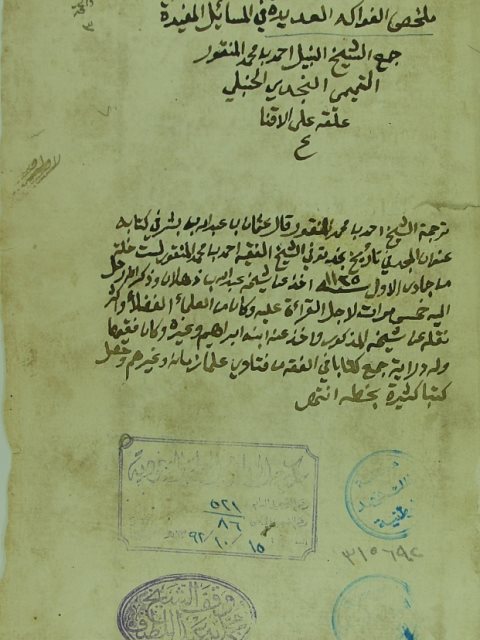 ملخص الفواكه العديده في المسايل المفيدة
جمع الشيخ النبيل احمد بن محمد المنقور
التميمي النجدي الحنبلي
علقه على الاقناع
ترجمة الشيخ احمد بن محمد المنقور قال عثمان بن عبد الله بن بشر في كتابه
عنوان المجد في تاريخ نجد توفي الشيخ الفقيه احمد بن محمد المنقور لست خلت
من جمادى الاول سنة ١١٢٥ اخذ عن شيخه عبد الله بن ذهلان وذكر انه رحل
اليه خمس مرات لاجل القراءة عليه وكان من العلماء الفضلاء واكثر
نقله عن شيخه المذكور واخذ عنه ابنه ابراهيم وغيره وكان فقيها
وله دراية جمع كتابا في الفقه من فتاوي علماء زمانه وغيرهم وحصل
كتبا كثيرة بخطه انتهى
٥٢١
٨٦
١٥/١٠/٩٢
٣١٥٦٩٤